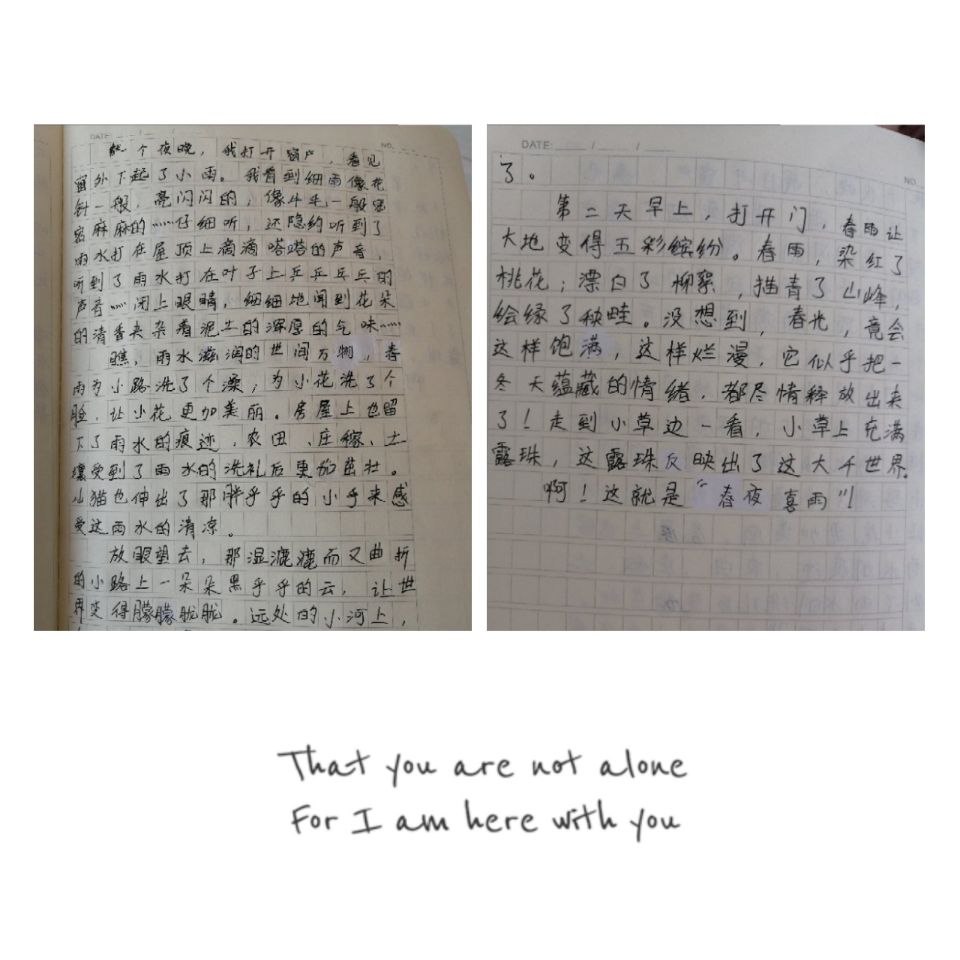 DATE: / /
NO.
一个夜晚，我打开窗户，看见
窗外下起了小雨。我看到细雨像花
针一般，亮闪闪的，像牛毛一般密
密麻麻的……仔细听，还隐约听到了
雨水打在屋顶上滴滴嗒嗒的声音，
听到了雨水打在叶子上乒乒乓乓的
声音……闭上眼睛，细细地闻到花朵
的清香夹杂着泥土的浑厚的气味……
瞧，雨水滋润的世间万物，春
雨为小路洗了个澡，为小花洗了个
脸，让小花更加美丽。房屋上也留
下了雨水的痕迹，农田、庄稼、土
壤受到了雨水的洗礼后更加茁壮。
小猫也伸出了那胖乎乎的小手来感
受这雨水的清凉。
放眼望去，那湿漉漉而又曲折
的小路上一朵朵黑乎乎的云，让世
界变得朦朦胧胧。远处的小河上，
DATE: / /
NO
了。
第二天早上，打开门，春雨让
大地变得五彩缤纷。春雨，染红了
桃花；漂白了柳絮，描青了山峰，
绘绿了秧畦。没想到，春光，竟会
这样饱满，这样烂漫，它似乎把一
冬天蕴藏的情绪，都尽情释放出来
了！走到小草边一看，小草上充满
露珠，这露珠反映出了这大千世界。
啊！这就是“春夜喜雨”！
That you are not alone
For I am here with you